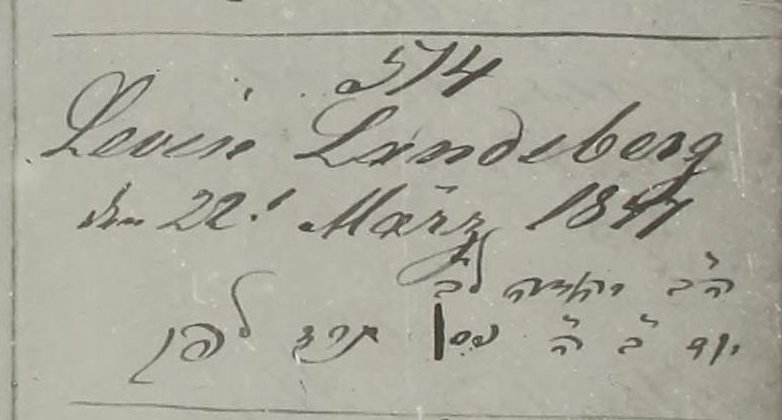 574
Levin Landsberg
den 22t März 1847
ה"ב יהודה לב
יום ב' ה' ניסן תרז לפק